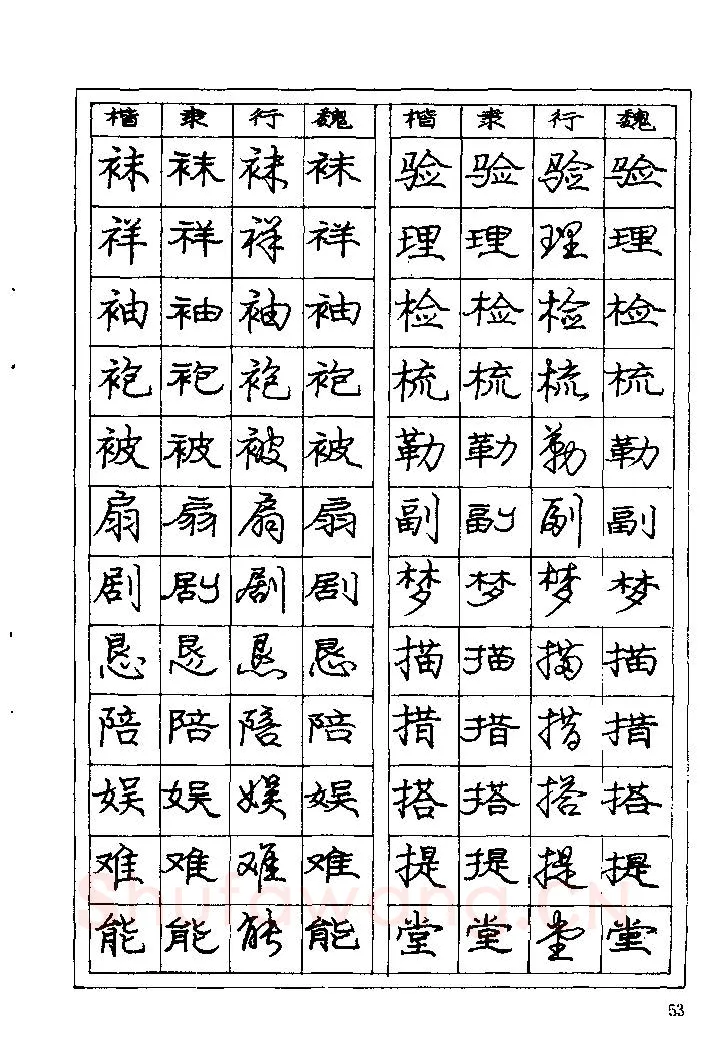 楷 隶 行 魏 楷 隶 行 魏
袜 袜 袜 袜 验 验 验 验
祥 祥 祥 祥 理 理 理 理
袖 袖 袖 袖 检 检 检 检
袍 袍 袍 袍 梳 梳 梳 梳
被 被 被 被 勒 勒 勒 勒
扇 扇 扇 扇 副 副 副 副
剧 剧 剧 剧 梦 梦 梦 梦
恳 恳 恳 恳 描 描 描 描
陪 陪 陪 陪 措 措 措 措
娱 娱 娱 娱 搭 搭 搭 搭
难 难 难 难 提 提 提 提
能 能 能 能 堂 堂 堂 堂
Shufawang.CN
53